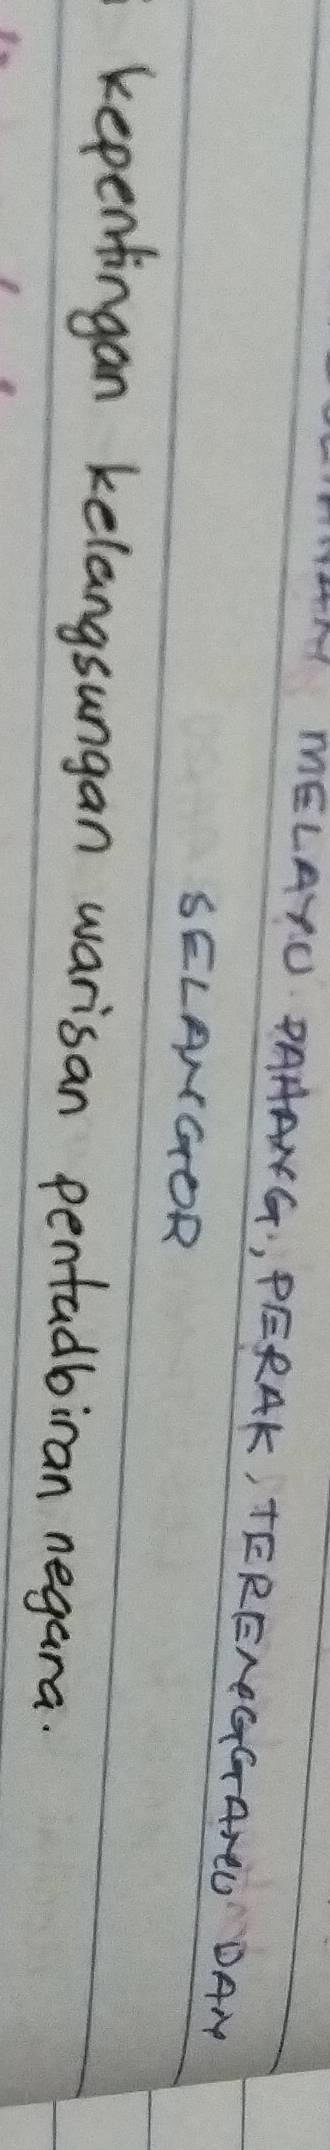 MELAYU PAHANG, PERAK, TERENGGANU DAN
SELANGOR
kepentingan kelangsungan warisan pentadbiran negara.